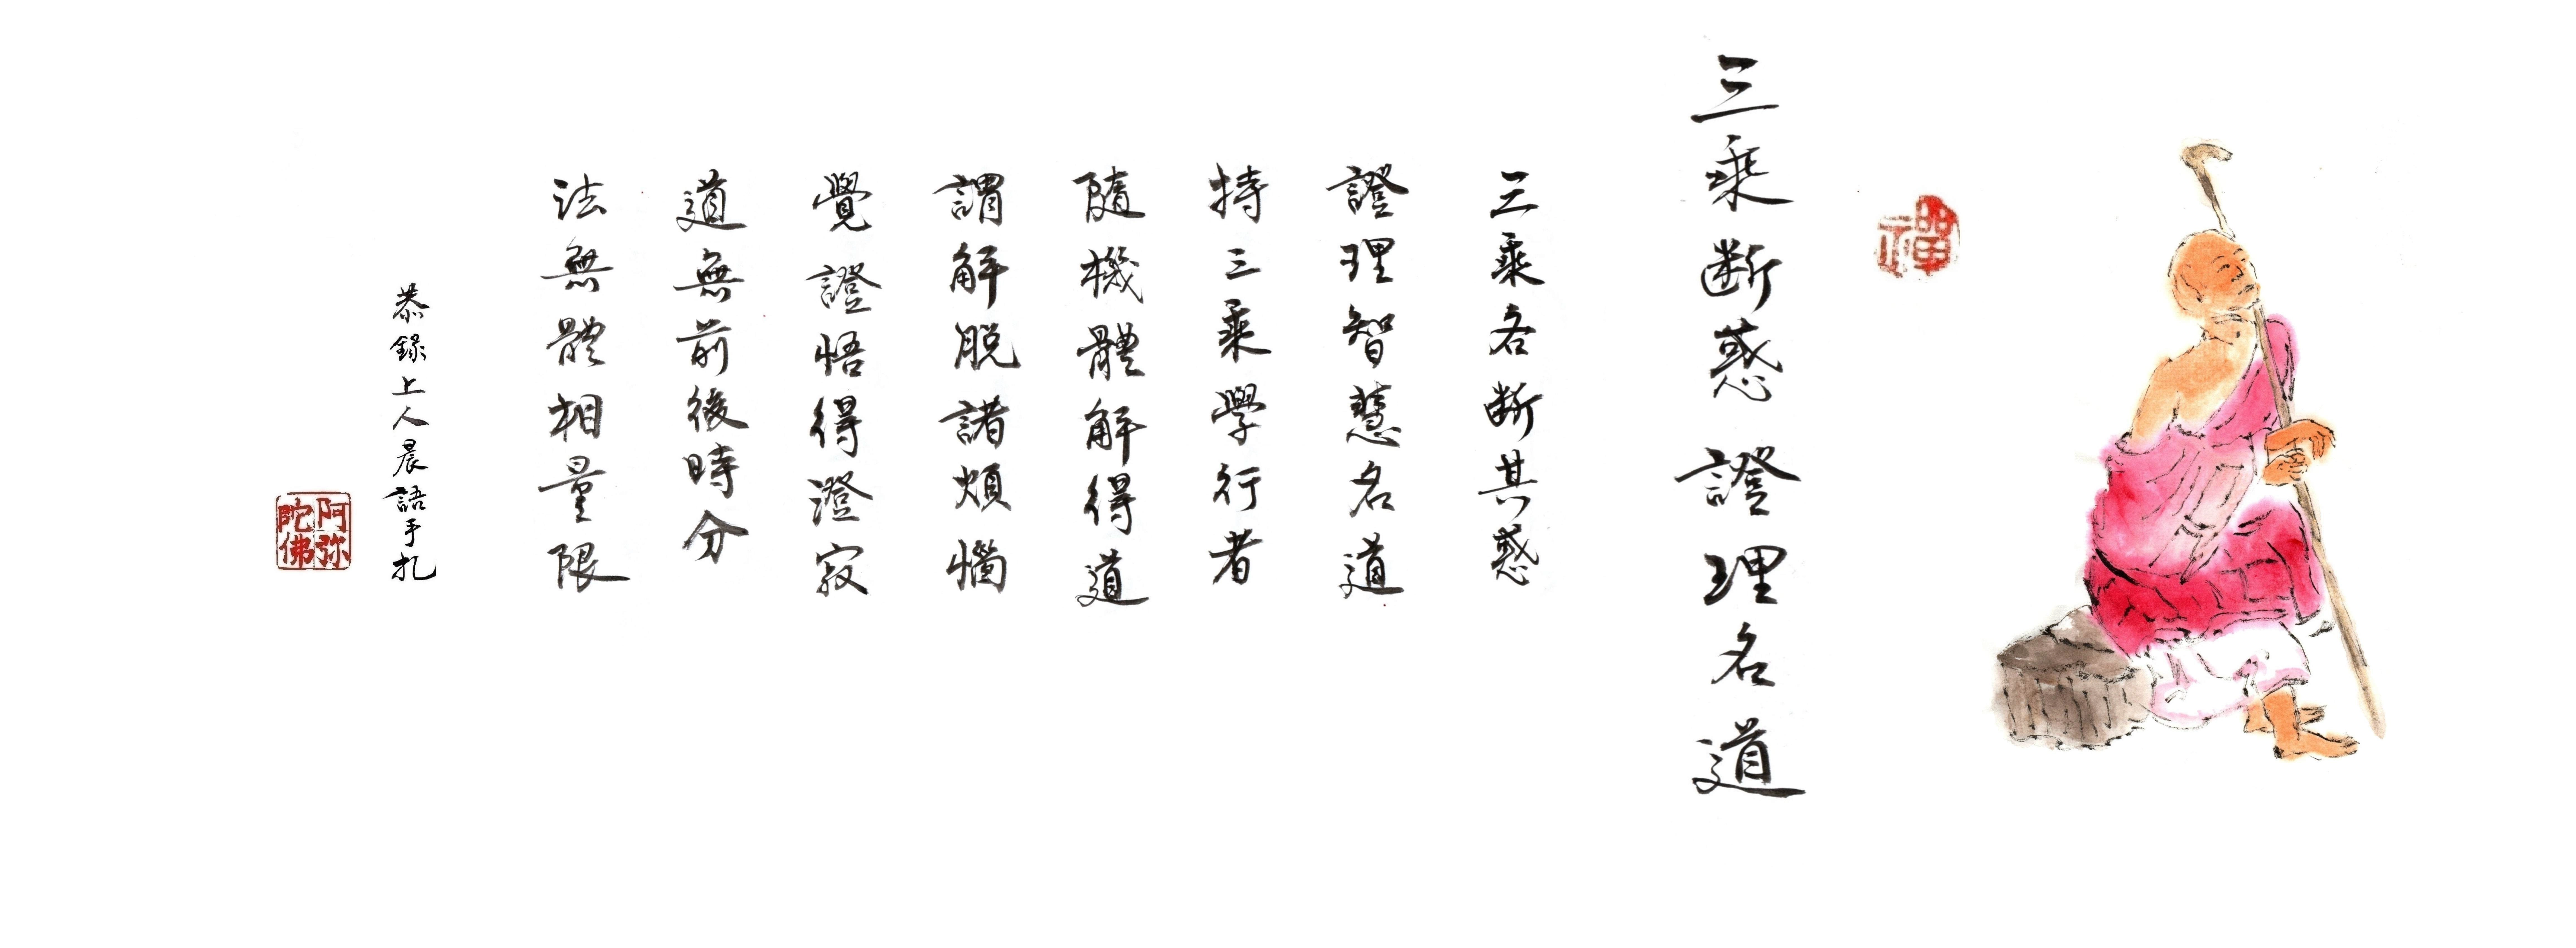 禪
三乘斷惑 證理名道
三乘各斷其惑
證理智慧名道
持三乘學行者
隨機體解得道
謂解脫諸煩惱
覺證悟得澄寂
道無前後時分
法無體相量限
恭錄上人晨語手扎
阿弥
陀佛